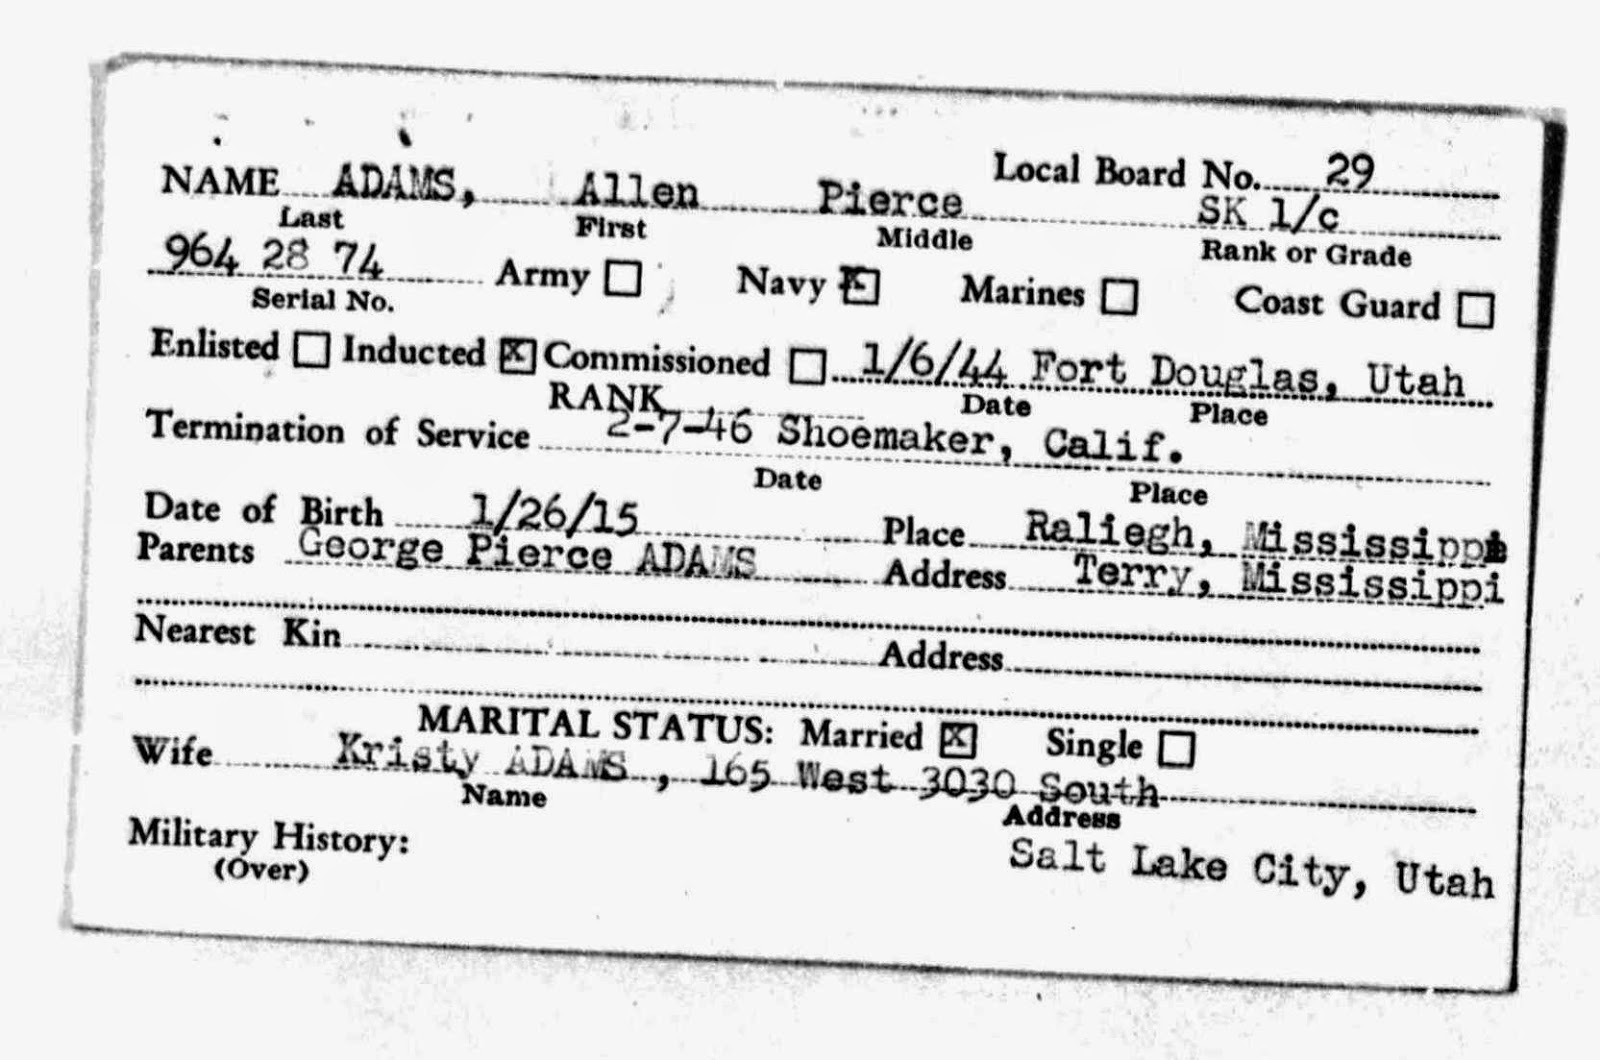 Local Board No. 29
NAME ADAMS, Allen Pierce SK 1/c
Last First Middle Rank or Grade
964 28 74 Army Navy X Marines Coast Guard
Serial No.
Enlisted Inducted X Commissioned 1/6/44 Fort Douglas, Utah
RANK Date Place
Termination of Service 2-7-46 Shoemaker, Calif.
Date Place
Date of Birth 1/26/15 Place Raliegh, Mississippi
Parents George Pierce ADAMS Address Terry, Mississippi
Nearest Kin Address
MARITAL STATUS: Married X Single
Wife Kristy ADAMS , 165 West 3030 South
Name Address
Military History: Salt Lake City, Utah
(Over)